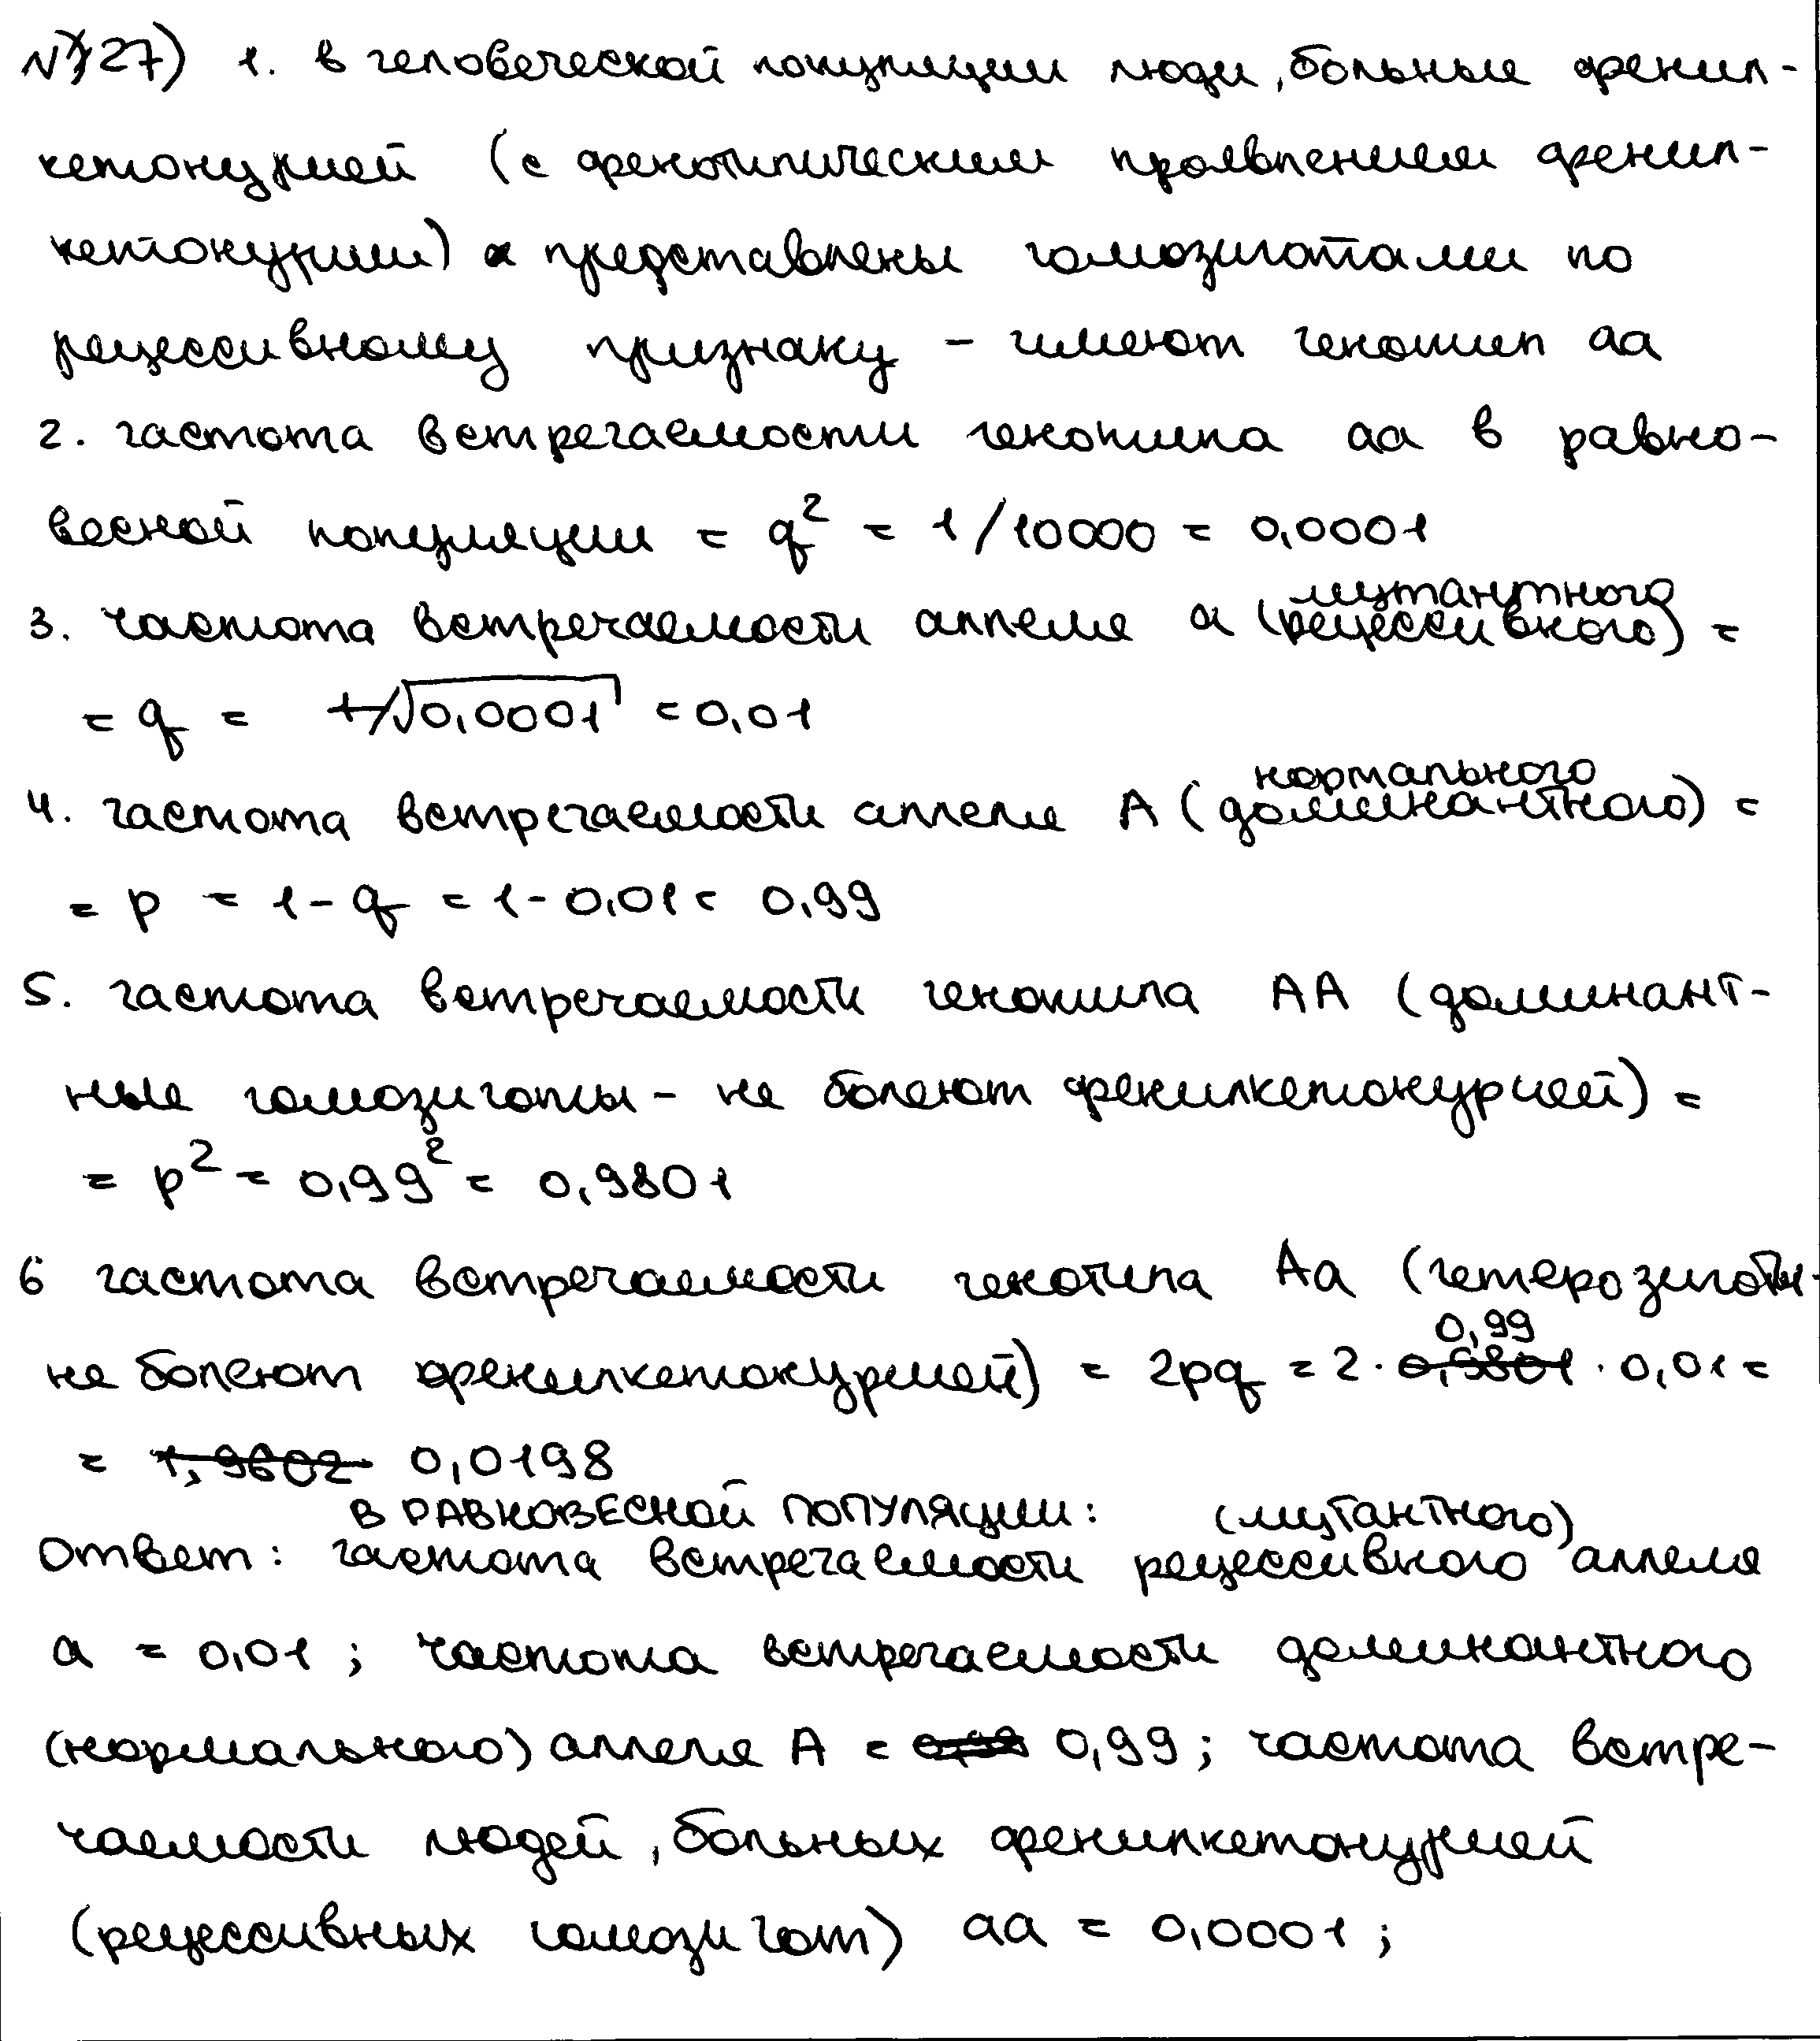 №27) 1. в человеческой популяции люди, больные фенил-
кетонурией (с фенотипическим проявлением фенил-
кетонурии) представлены гомозиготами по
рецессивному признаку - имеют генотип аа
2. частота встречаемости генотипа аа в равно-
весной популяции = q² = 1/10000 = 0,0001
мутантного
3. частота встречаемости аллеля а (рецессивного) =
= q = √0,0001 = 0,01
нормального
4. частота встречаемости аллеля А (доминантного) =
= р = 1 - q = 1 - 0,01 = 0,99
5. частота встречаемости генотипа АА (доминант-
ные гомозиготы - не болеют фенилкетонурией) =
= р² = 0,99² = 0,9801
6 частота встречаемости генотипа Аа (гетерозиготы -
0,99
не болеют фенилкетонурией) = 2pq = 2 · 0,9801 · 0,01 =
= 1,9602 0,0198
В РАВНОВЕСНОЙ ПОПУЛЯЦИИ: (мутантного)
Ответ: частота встречаемости рецессивного аллеля
а = 0,01 ; частота встречаемости доминантного
(нормального) аллеля А = 0,99 ; частота встре-
чаемости людей, больных фенилкетонурией
(рецессивных гомозигот) аа = 0,0001 ;